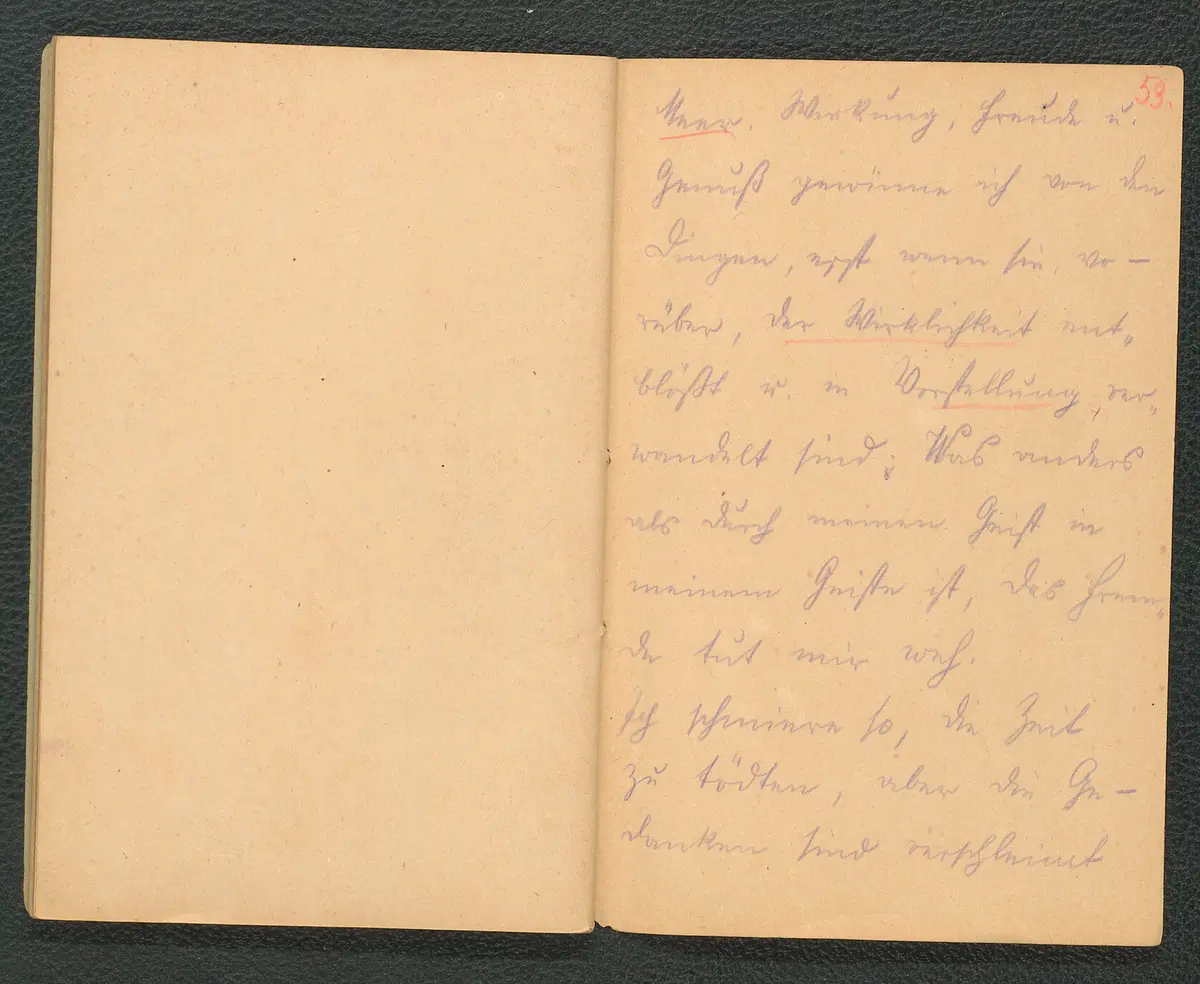 53.
Meer. Wirkung, Freude u.
Genuß gewinne ich von den
Dingen, erst wenn sie vo-
rüber, der Wirklichkeit ent„
blößt u. in Vorstellung ver„
wandelt sind; Was anders
als durch meinen Geist in
meinem Geiste ist, das Frem„
de tut mir weh.
Ich schmiere so, die Zeit
zu tödten, aber die Ge-
danken sind verschleimt